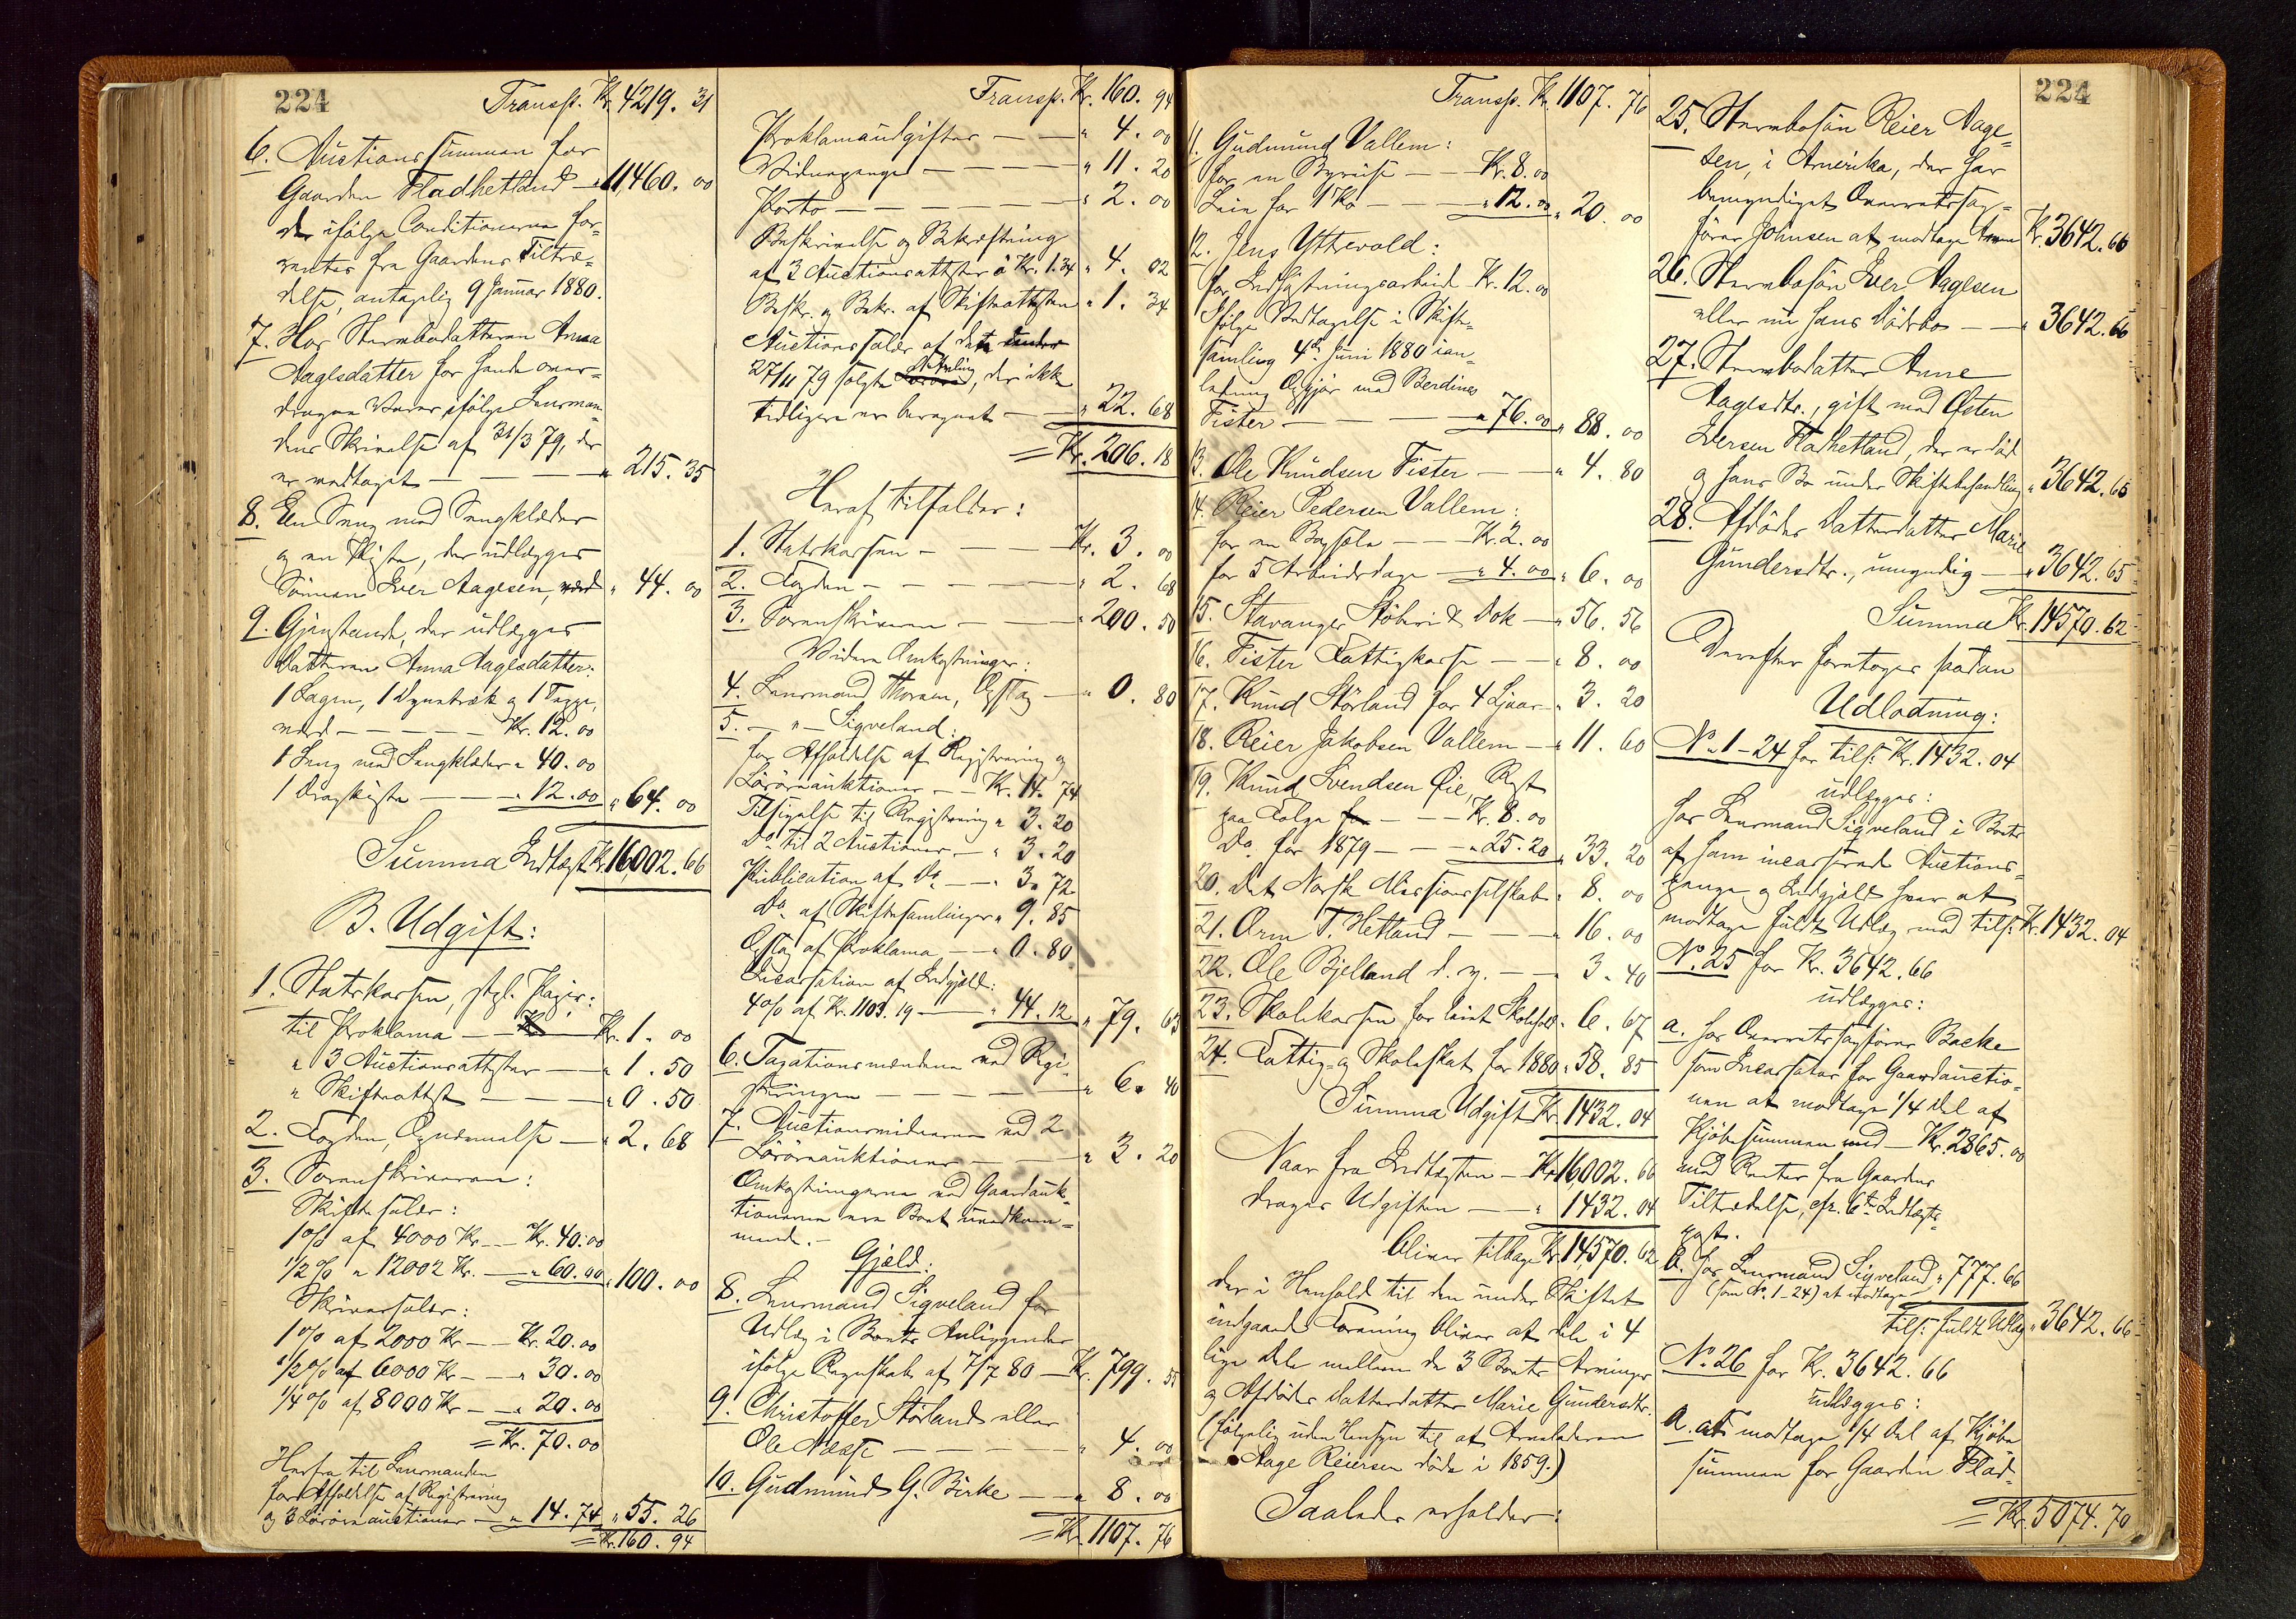 224
Transp. Kr. 4219. 31
6. Auctionssummen for
Gaarden Fladhetland — " 11,460. 00
der ifølge Conditionerne for-
rentes fra Gaardens Tiltræ-
delse, antagelig 9 Januar 1880.
7. Hos Stervbodatteren Anna
Aagesdatter for hende over-
dragne Varer ifølge Lensman-
dens Skrivelse af 31/3 79, der
er modtaget — — — " 215. 35
8. En Seng med Sengklæder
og en Kiste, der udlægges
Sønnen Iver Aagesen, værd " 44. 00
9. Gjenstande, der udlægges
Datteren Anna Aagesdatter:
1 Lagen, 1 Dynetræk og 1 Teppe,
værd — — — — Kr. 12. 00
1 Seng med Sengklæder " 40. 00
1 Dragkiste — — " 12. 00 " 64. 00
Summa Indtægt Kr. 16,002. 66
B. Udgift:
1. Statskassen, stpl. Papir:
til Proklama — Kr. 1. 00
" 3 Auctionsattester — " 1. 50
" Skifteattest — — " 0. 50
2. Fogden, Opnævnelse — " 2. 68
3. Sorenskriveren:
Skiftesalær:
1% af 4000 Kr — Kr. 40. 00
1/2% " 12002 Kr. — " 60. 00 " 100. 00
Skriversalær:
1% af 2000 Kr — Kr. 20. 00
1/2% af 6000 Kr — " 30. 00
1/4% af 8000 Kr — " 20. 00
= Kr. 70. 00
Herfra til Lensmanden
for Afholdelse af Registrering
og 3 Løsøreauctioner — " 14. 74 " 55. 26
= Kr. 160. 94
Transp. Kr. 160. 94
Proklamaudgifter — — " 4. 00
Vidnepenge — — — " 11. 20
Porto — — — — " 2. 00
Beskrivelse og Bekræftning
af 3 Auctionsattester à Kr. 1.34 " 4. 02
Beskr. og Bekr. af Skifteattesten " 1. 34
Auctionssalær af dette under
27/11 79 solgte, der ikke
tidligere er beregnet — " 22. 68
= Kr. 206. 18
Heraf tilfalder:
1. Statskassen — — Kr. 3. 00
2. Fogden — — — " 2. 68
3. Sorenskriveren — — " 200. 50
Videre Omkostninger:
4. Lensmand Thorsen, Opslag — " 0. 80
5. — " — Sigveland:
for Afholdelse af Registrering og
Løsøreauktioner — Kr. 14. 74
Tilsigelse til Registrering " 3. 20
Do til 2 Auctioner — " 3. 20
Publication af Do — " 3. 72
Do af Skiftesamlinger " 9. 85
Opslag af Proklama — " 0. 80
Incassation af Indgjæld:
4% af Kr. 1103. 19 — " 44. 12 " 79. 63
6. Taxationsmændene ved Regi-
streringen — — — " 6. 40
7. Auctionsvidnerne ved 2
Løsøreauktioner — — " 3. 20
Omkostningerne ved Gaardauk-
tionerne ere Boet uvedkom-
mende. —
Gjæld:
8. Lensmand Sigveland for
Udlæg i Boets Anliggender
ifølge Regnskab af 7/7 80 — Kr. 799. 55
9. Christoffer Størland eller
Ole Næsse — — — " 4. 00
10. Gudmund G. Birke — " 8. 00
= Kr. 1107. 76
Transp. Kr. 1107. 76
11. Gudmund Vallem:
for en Byreise — — Kr. 8. 00
Leie for 1 Ko — — " 12. 00 " 20. 00
12. Jens Yttevold:
for Indhøstningsarbeid Kr. 12. 00
Ifølge Vedtagelse i Skifte-
samling 4de Juni 1880 i an-
ledning Opgjør med Berdines
Fister — — — " 76. 00 " 88. 00
13. Ole Knudsen Fister — " 4. 80
14. Reier Pedersen Vallem:
for en — — Kr. 2. 00
for 5 Arbeidsdage — " 4. 00 " 6. 00
15. Stavanger Støberi & Dok — " 56. 56
16. Fister Fattigkasse — — " 8. 00
17. Knud Størland for 4 Ljaar " 3. 20
18. Reier Jakobsen Vallem — " 11. 60
19. Knud Svendsen Øie, Rest
paa Følge for — — Kr. 8. 00
Do for 1879 — — " 25. 20 " 33. 20
20. Det Norsk Missionsselskab " 8. 00
21. Orm T. Hetland — — " 16. 00
22. Ole Bjelland d. y. — — 3. 40
23. Skolekassen for leiet Skolehold " 6. 67
24. Fattig- og Skoleskat for 1880 " 58. 85
Summa Udgift Kr. 1432. 04
Naar fra Indtægten — Kr. 16,002. 66
drages Udgiften — — " 1432. 04
bliver tilbage Kr. 14,570. 62
der i Henhold til den under Skiftet
indgaaede Forening bliver at dele i 4
lige Dele mellem de 3 Boets Arvinger
og Afdødes Datterdatter Marie Gundersdtr.
(følgelig uden Hensyn til at Arveladeren
Aage Reiersen døde i 1859.)
Saaledes erholder:
224
25. Stervbosøn Reier Aage-
sen, i Amerika, der har
bemyndiget Overretssag-
fører Johnsen at modtage Arven Kr. 3642. 66
26. Stervbosøn Iver Aagesen
eller nu hans Dødsbo — — " 3642. 66
27. Stervbodatter Anne
Aagesdtr., gift med Østen
Iversen Fladhetland, der er død
og hans Bo under Skiftebehandling " 3642. 65
28. Afdødes Datterdatter Marie
Gundersdtr., umyndig — " 3642. 65
Summa Kr. 14570. 62
Derefter foretoges saadan
Udlodning:
No 1-24 for tils. Kr. 1432. 04
udlægges:
hos Lensmand Sigveland i Boets
af ham incasserede Auctions-
penge og Indgjæld hver at
modtage fuldt Udlæg med tils. Kr. 1432. 04
No. 25 for Kr. 3642. 66
udlægges:
a. hos Overretssagfører Backe
som Incassator for Gaardauctio-
nen at modtage 1/4 Del af
Kjøbesummen med — Kr. 2865. 00
med Renter fra Gaardens
Tiltrædelse, cfr. 6te Indtægts-
post.
b. hos Lensmand Sigveland " 777. 66
(som No. 1-24) at modtage
tils. fuldt Udlæg " 3642. 66
No. 26 for Kr. 3642. 66
udlægges:
a. at modtage 1/4 Del af Kjøbe
summen for Gaarden Flad-
= Kr. 5074. 70